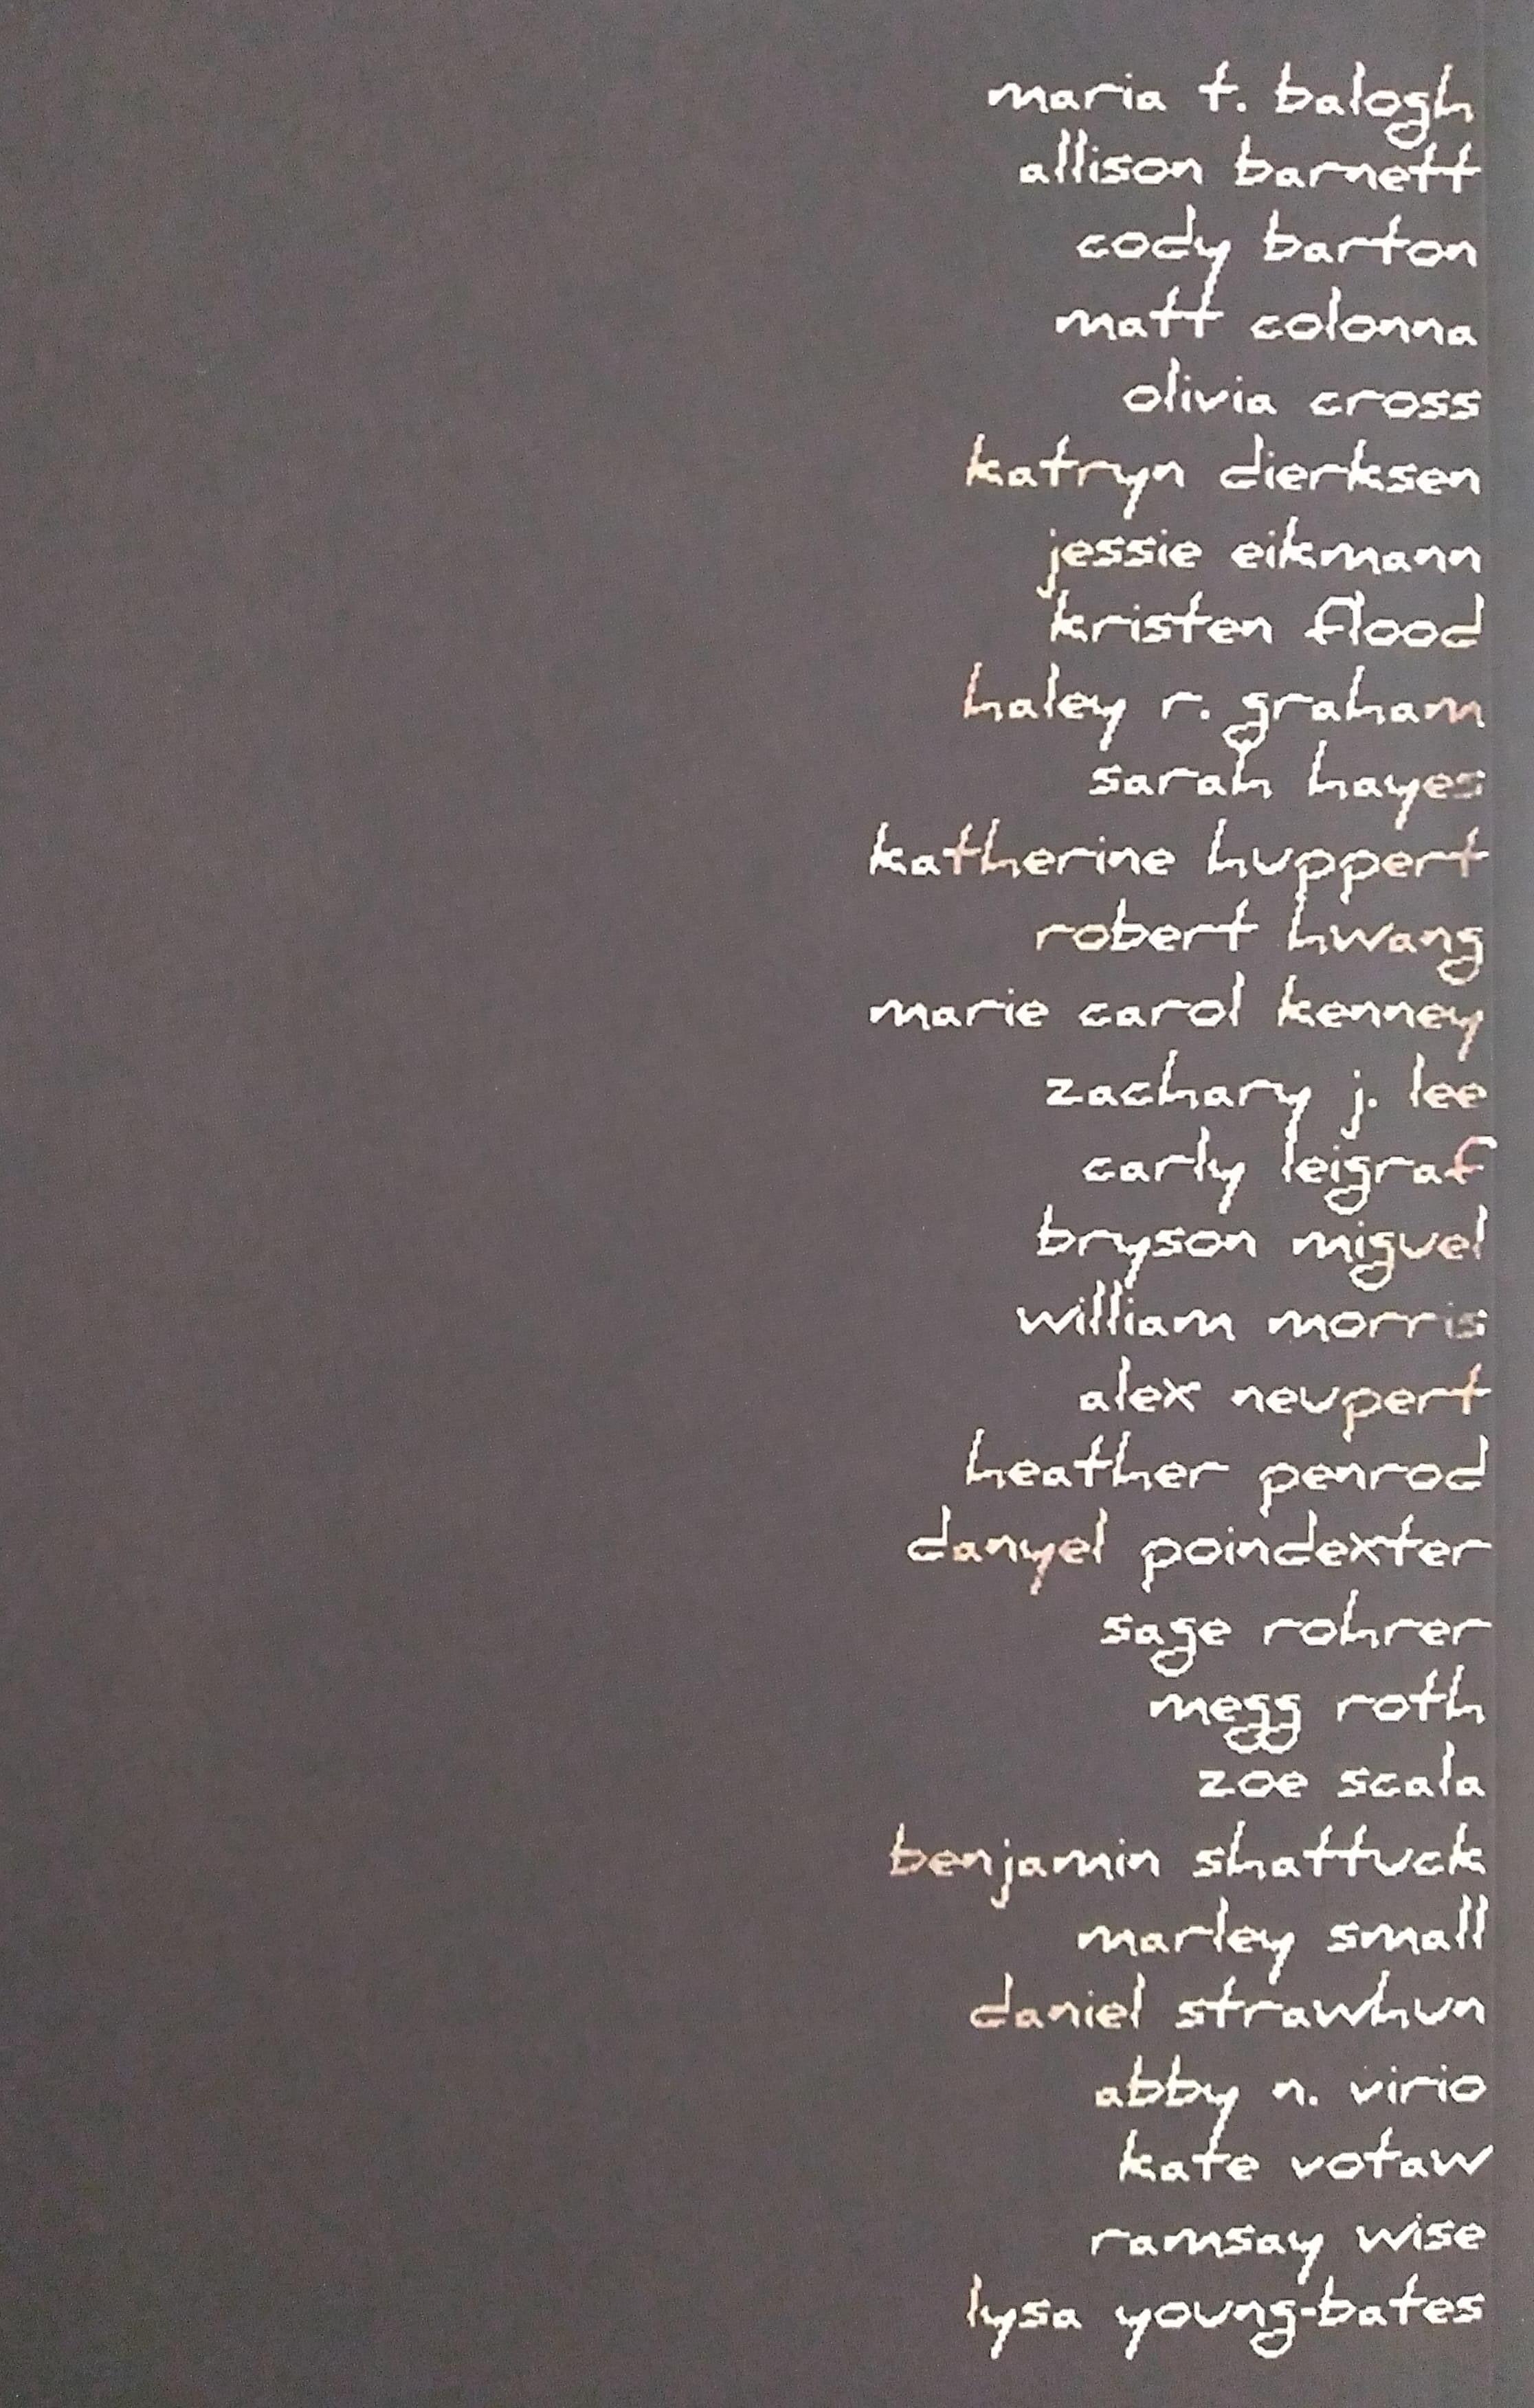 maria t. balogh
allison barnett
cody barton
matt colonna
olivia cross
katryn dierksen
jessie eikmann
kristen flood
haley r. graham
sarah hayes
katherine huppert
robert hwang
marie carol kenney
zachary j. lee
carly leigraf
bryson miguel
william morris
alex neupert
heather penrod
danyel poindexter
sage rohrer
megg roth
zoe scala
benjamin shattuck
marley small
daniel strawhun
abby n. virio
kate votaw
ramsay wise
lysa young-bates